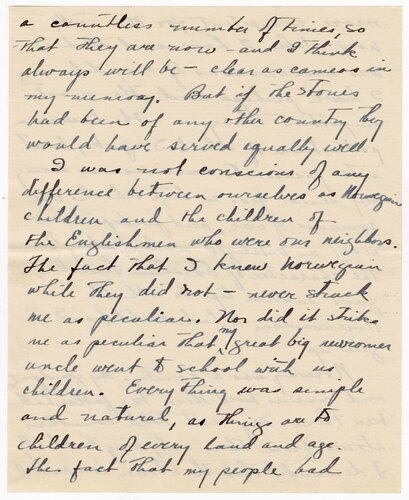 a countless number of times, so
that they are now - and I think
always will be - clear as cameos in
my memory. But if the stories
had been of any other country they
would have served equally well.
I was not conscious of any
difference between ourselves as Norwegian
children and the children of
the Englishmen who were our neighbors.
The fact that I knew Norwegian
while they did not - never struck
me as peculiar. Nor did it strike
me as peculiar that my great big newcomer
uncle went to school with us
children. Everything was simple
and natural, as things are to
children of every land and age.
The fact that my people had